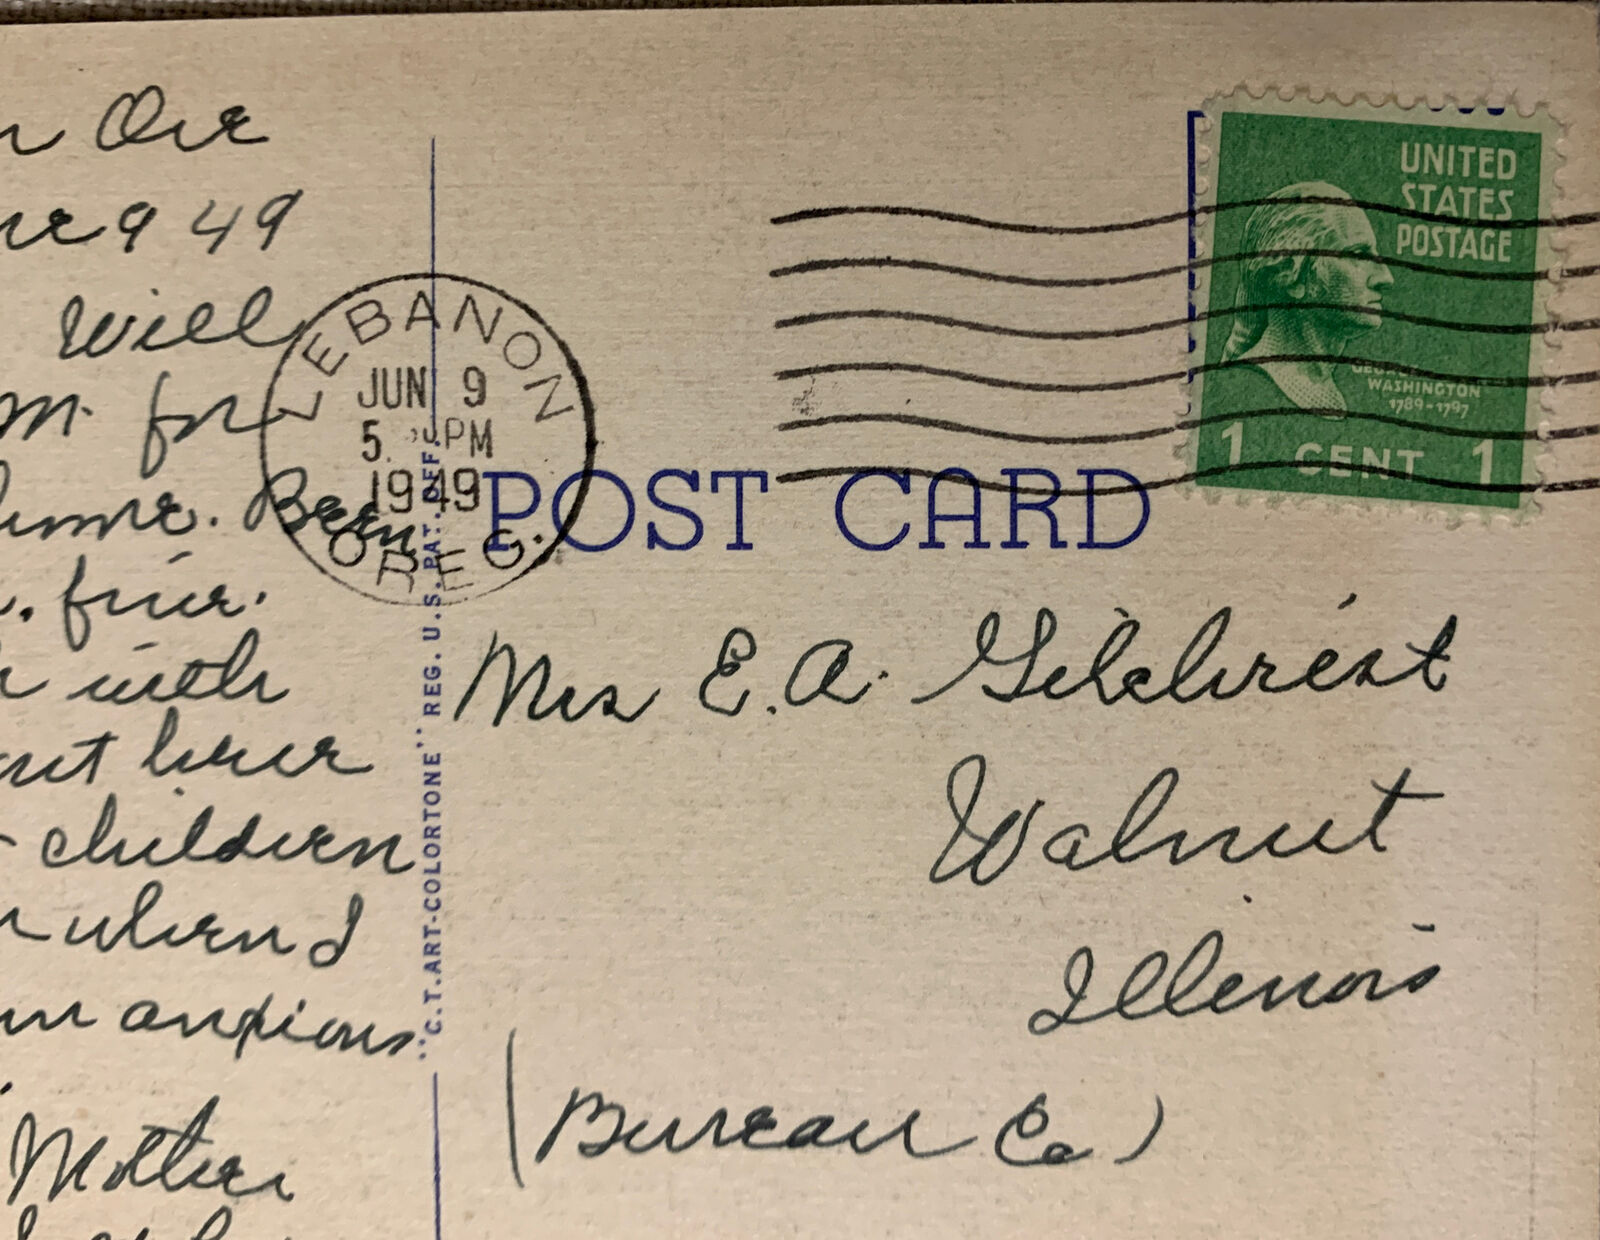 Ore
9 49
Will
M. for
home. Been
fine.
with
but her
children
when I
am anxious
Mother
LEBANON
JUN 9
5 PM
1949
OREG.
"C.T. ART-COLORTONE" REG. U.S. PAT. OFF.
UNITED
STATES
POSTAGE
GEORGE
WASHINGTON
1789-1797
1 CENT 1
POST CARD
Mrs E.A. Gilchrist
Walnut
Illinois
(Bureau Co)